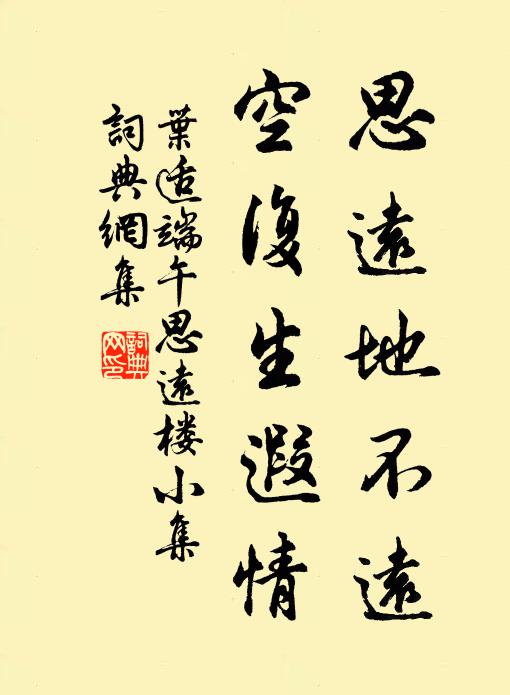 思遠地不遠
空復生遐情
葉适端午思遠楼小集
詞典網集
詞典网印